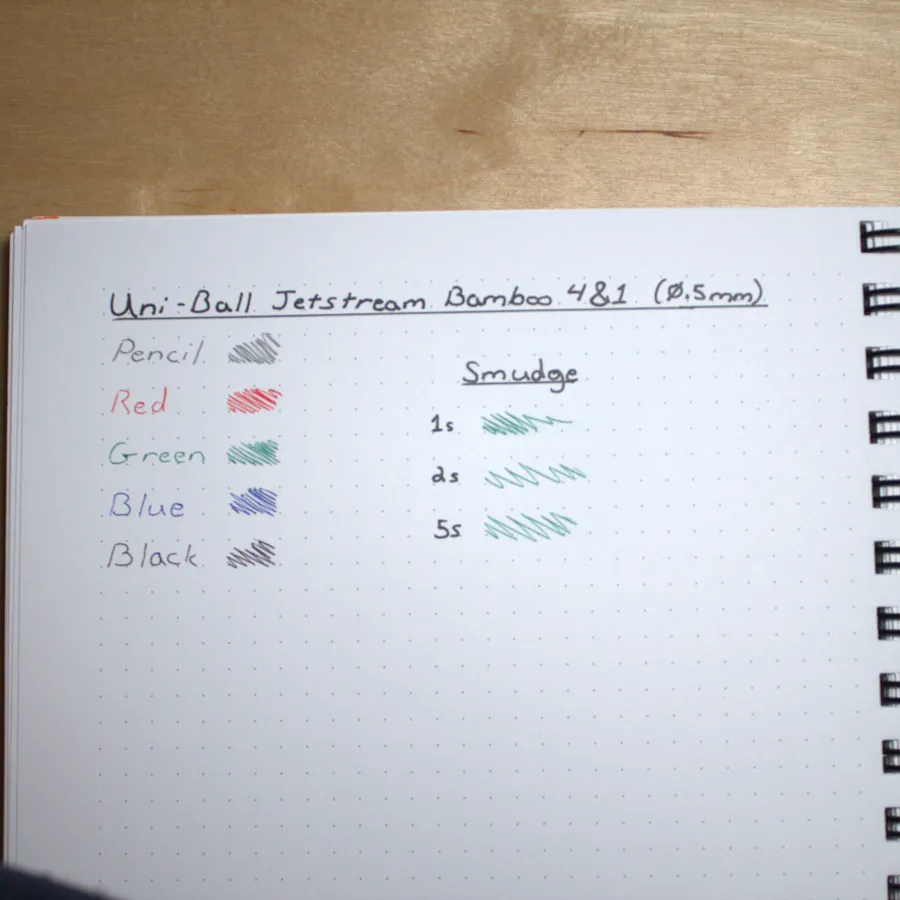 Uni-Ball Jetstream Bamboo 4&1 (0.5mm)
Pencil
Red
Green
Blue
Black
Smudge
1s
2s
5s